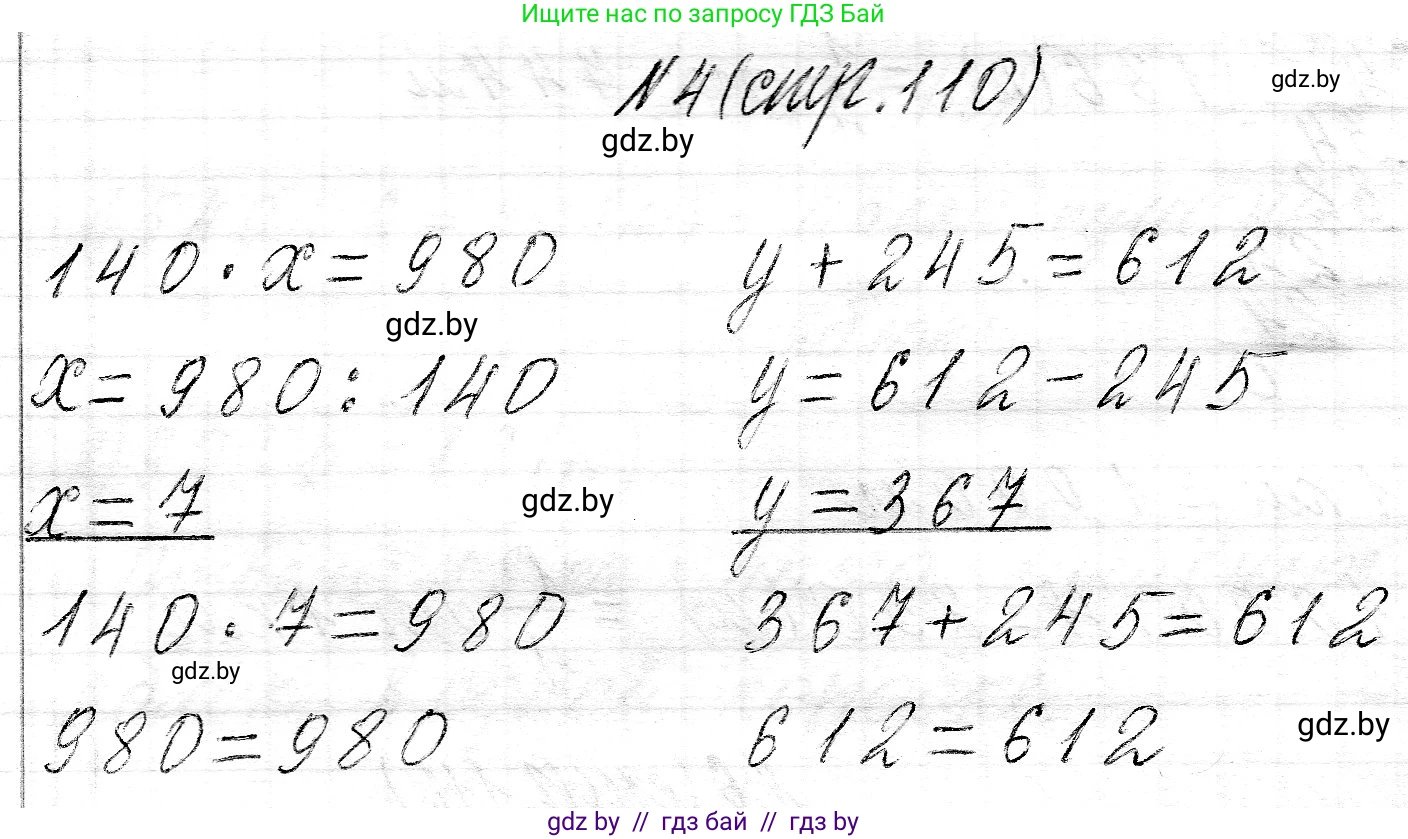 Ищите нас по запросу ГДЗ Бай
№4(стр.110)
gdz.by
gdz.by
140·x=980
y+245=612
gdz.by
x=980:140
y=612-245
x=7
gdz.by
y=367
140·7=980
367+245=612
gdz.by
980=980
612=612
gdz.by
gdz by // гдз бай // гдз by